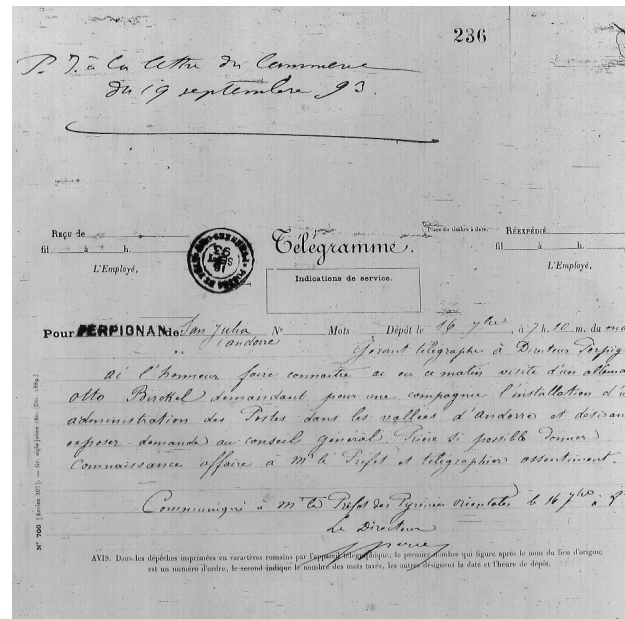 236
P. J. à la lettre du Commerce
du 19 septembre 93.
Reçu de
fil à h.
L'Employé,
Télégramme.
Indications de service.
Place du timbre à date.
RÉEXPÉDIÉ
fil à h.
L'Employé,
Pour PERPIGNAN de San Julia Nº Mots Dépôt le 16 7bre, à 7 h. 10 m. du
(andorre
Gérant télégraphe à Directeur Perpig
ai l'honneur faire connaitre ai eu ce matin visite d'un allema
otto Birckel demandant pour une compagnie l'installation d'u
administration des Postes dans les vallées d'Andorre et désiran
exposer demande au conseil général. Prière si possible donner
connaissance affaire à Mr le Préfet et télégraphier assentiment.
Communiqué à Mr le Préfet des Pyrénées orientales le 16 7bre à
Le Directeur
Nº 700
AVIS. Dans les dépêches imprimées en caractères romains par l'appareil télégraphique, le premier nombre qui figure après le nom du lieu d'origine
est un numéro d'ordre, le second indique le nombre des mots taxés, les autres désignent la date et l'heure de dépôt.